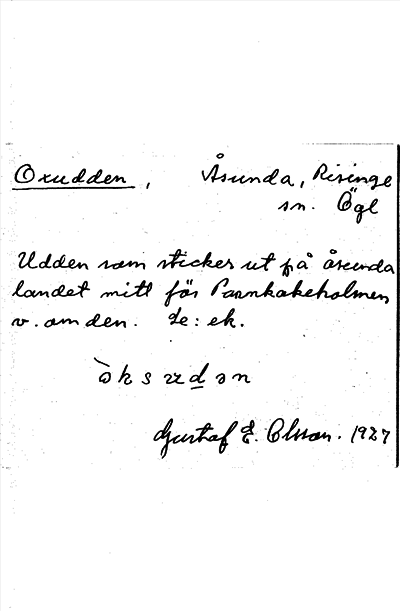 Oxudden, Åsunda, Risinge
sn. Ögl
Udden som sticker ut på åsunda
landet mitt för Pannkakeholmen
v. om den. Le: ek.
òksudən
Gustaf E. Olsson. 1927